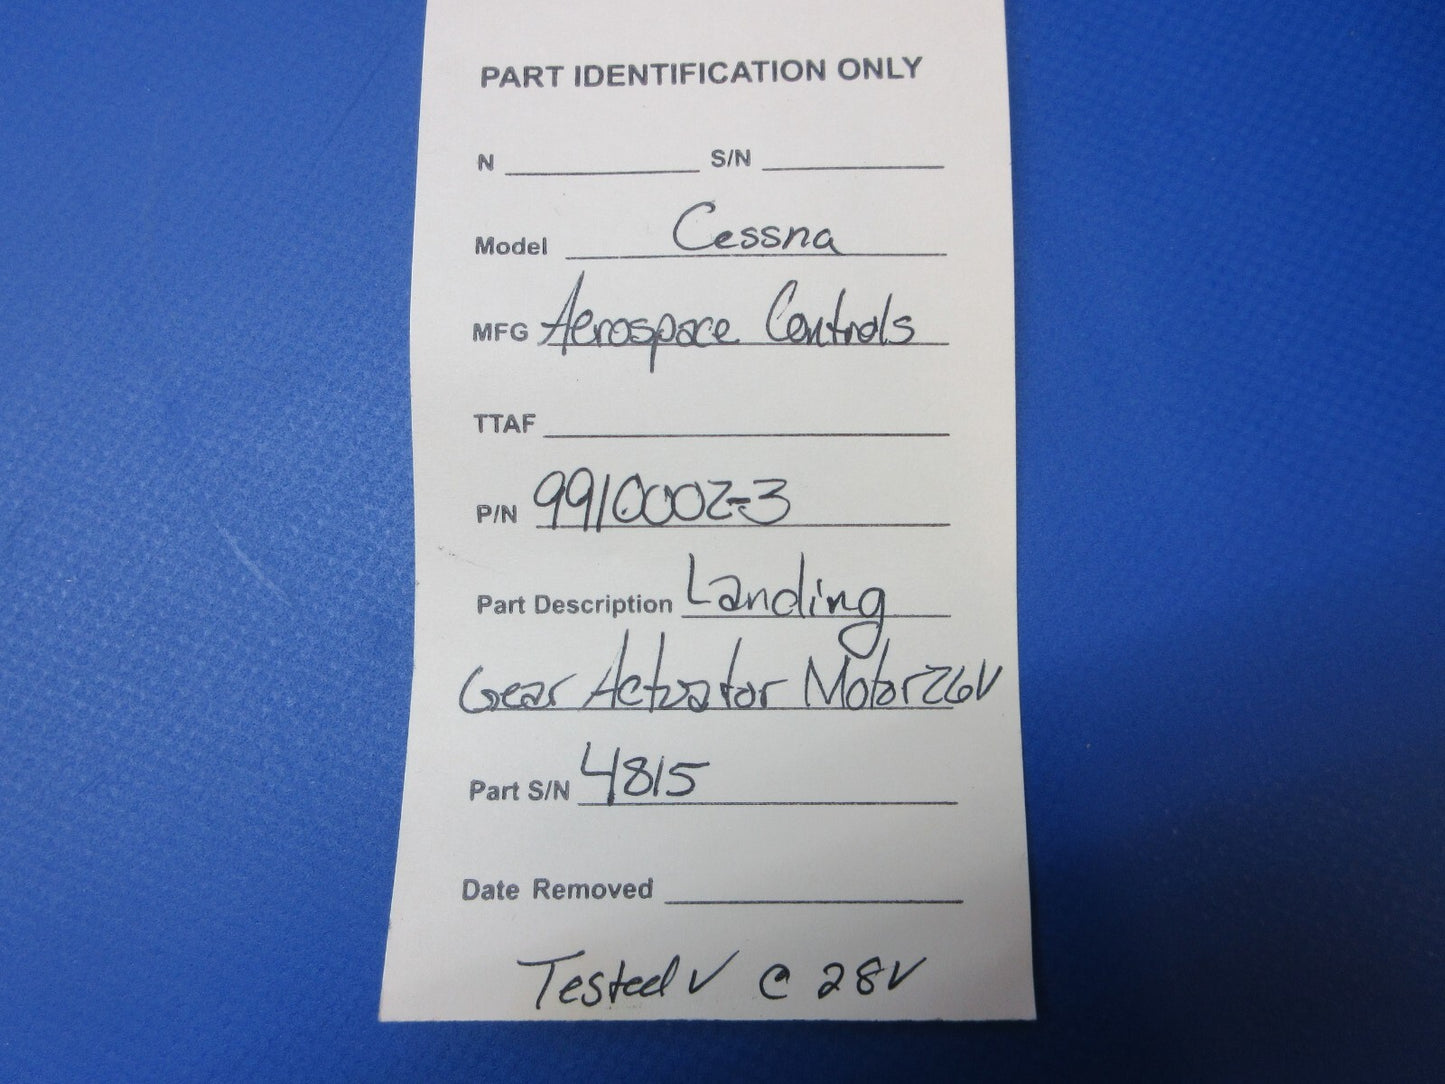 PART IDENTIFICATION ONLY
N S/N
Model Cessna
MFG Aerospace Controls
TTAF
P/N 9910002-3
Part Description Landing
Gear Actuator Motor 26V
Part S/N 4815
Date Removed
Tested ✓ @ 28V